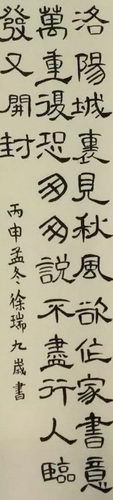 洛陽城裏見秋風欲作家書意
萬重復恐匆匆說不盡行人臨
發又開封
丙申孟冬徐瑞九歲書